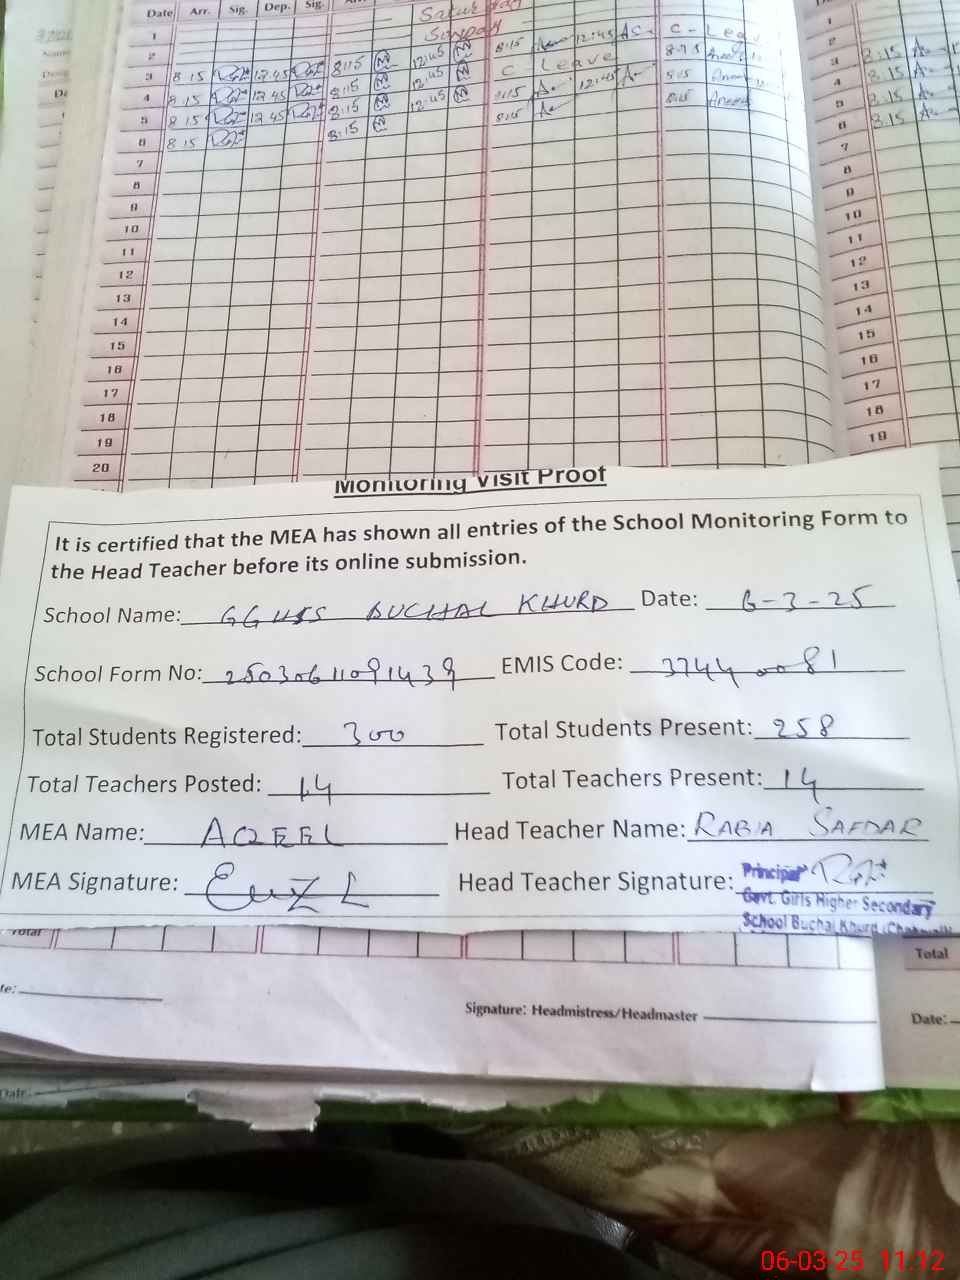 Date Arr. Sig. Dep. Sig.
1 Saturday
2 Sunday 8:15 12:45 C - Leav
3 8 15 12 45 8:15 12:45 C Leave 8:15
4 8 15 12 45 8:15 12:45 8:15 12:45 8:15
5 8 15 12 45 8:15 12:45 8:15 8:15
6 8 15 8:15
7
8
9
10
11
12
13
14
15
16
17
18
19
20
1
2
3 8.15
4 8.15
5 8.15
6 8.15
7
8
9
10
11
12
13
14
15
16
17
18
19
Monitoring Visit Proof
It is certified that the MEA has shown all entries of the School Monitoring Form to
the Head Teacher before its online submission.
School Name: GGHSS BUCHAL KHURD Date: 6-3-25
School Form No: 25030611091439 EMIS Code: 37440081
Total Students Registered: 300 Total Students Present: 258
Total Teachers Posted: 14 Total Teachers Present: 14
MEA Name: AQEEL Head Teacher Name: RABIA SAFDAR
MEA Signature: Head Teacher Signature: Principal
Govt. Girls Higher Secondary
School Buchal Khurd
Total
Total
Signature: Headmistress/Headmaster
Date:
Date:
06-03-25 11:12